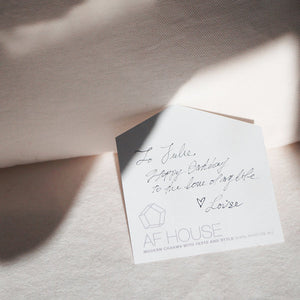 To Julie,
Happy Birthday
to the love of my life
♡ Louise
AF HOUSE
MODERN CHARMS WITH TASTE AND STYLE